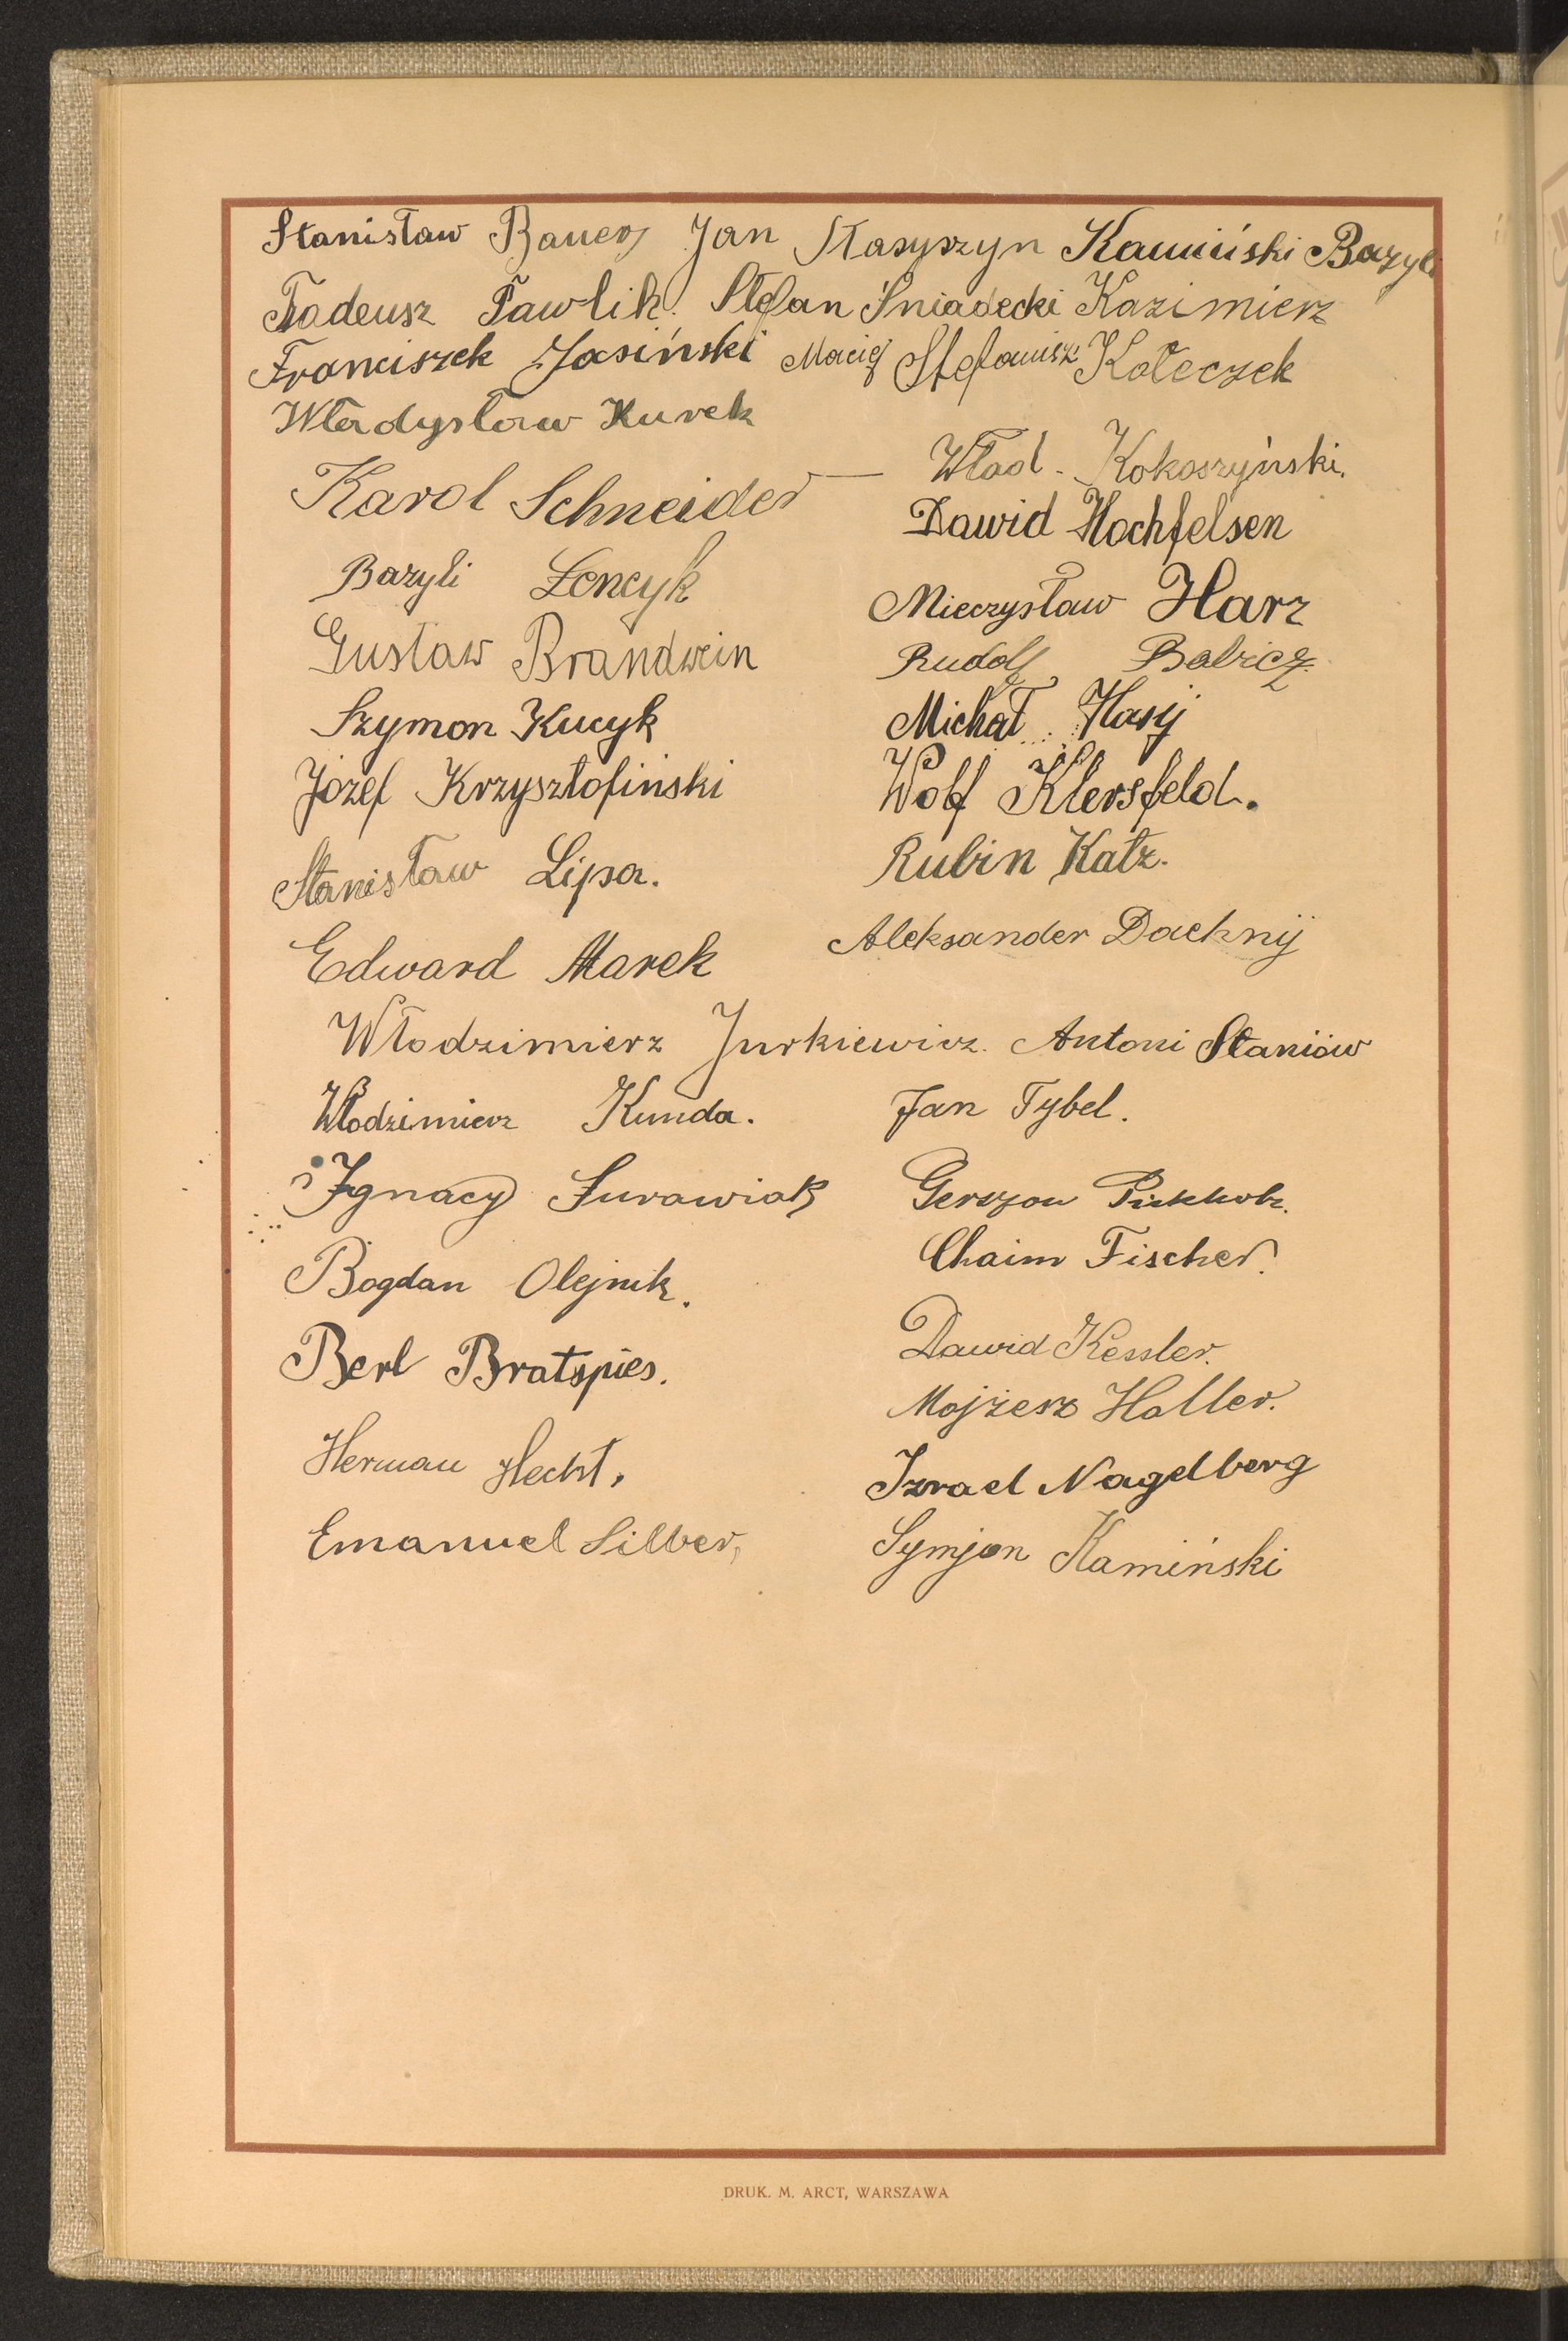 Stanisław Bauer Jan Stasyszyn Kamiński Bazyli
Tadeusz Pawlik. Stefan Śniadecki Kazimierz
Franciszek Jasiński Maciej Stefanisz Koteczek
Władysław Kurek
Karol Schneider — Wład. Kokoszyński.
Dawid Hochfelsen
Bazyli Łencyk
Mieczysław Harz
Gustaw Brandwein
Rudolf Babicz.
Szymon Kucyk
Michał Hasij
Józef Krzysztofiński
Wolf Klersfeld.
Stanisław Lipa.
Rubin Katz.
Edward Marek
Aleksander Dachnij
Włodzimierz Jurkiewicz. Antoni Staniów
Włodzimierz Kunda.
Jan Tybel.
Ignacy Surawiak
Gerszon Pickholz.
Chaim Fischer.
Bogdan Olejnik.
Berl Bratspies.
Dawid Kessler.
Mojżesz Haller.
Herman Hecht.
Izrael Nagelberg
Emanuel Silber,
Symjon Kamiński
DRUK. M. ARCT, WARSZAWA